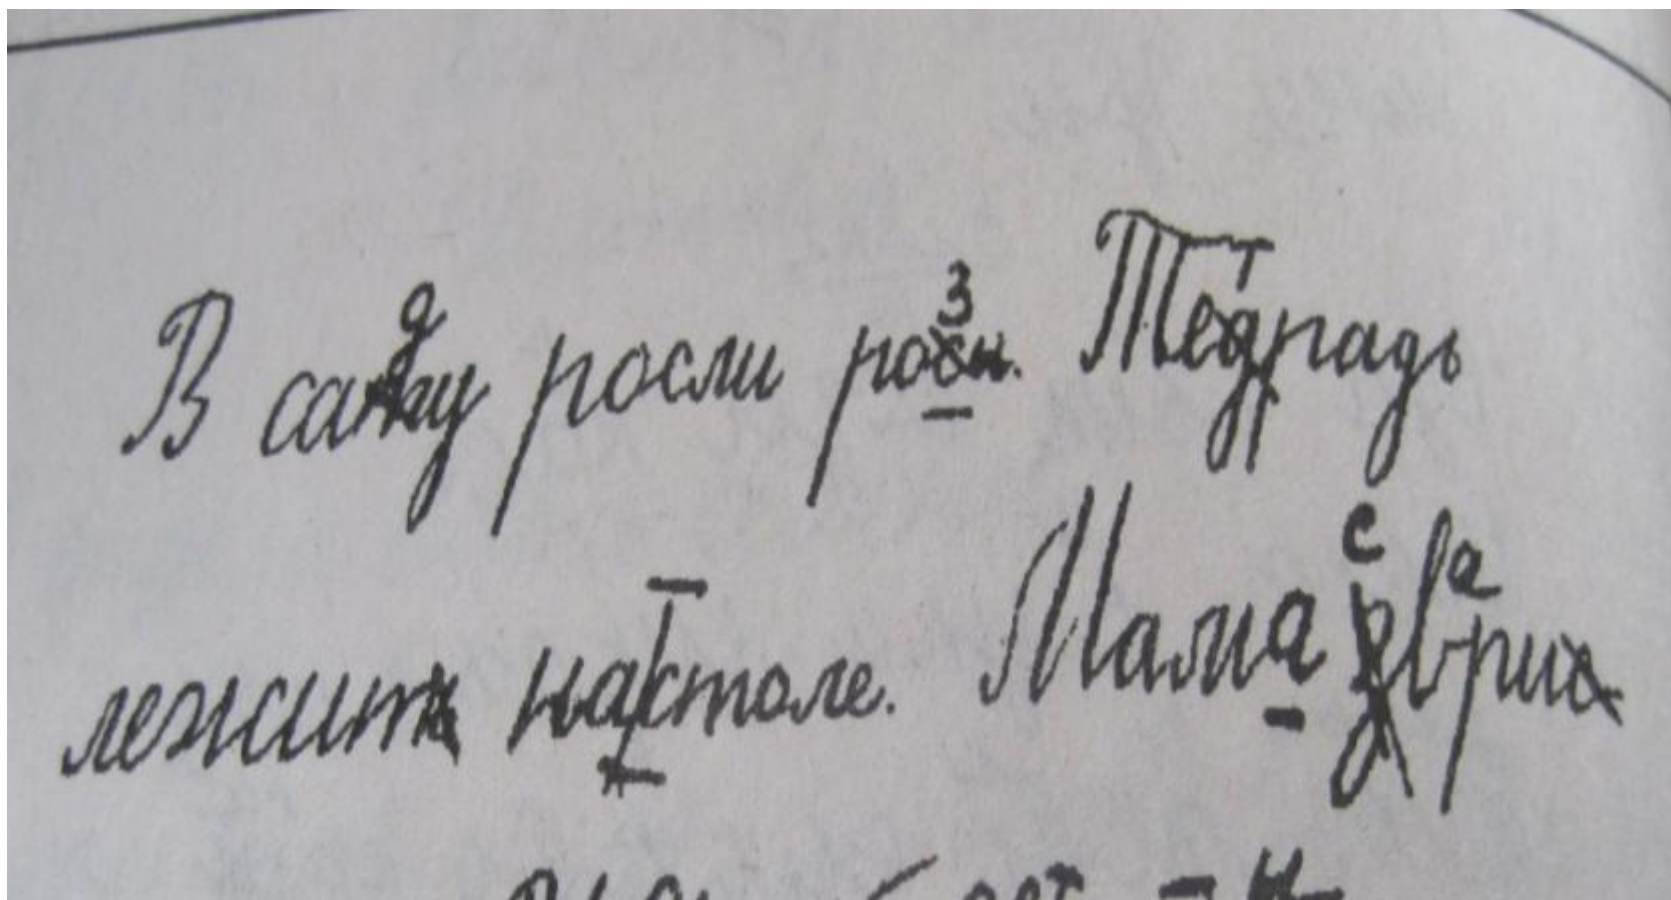 В саду росли розы. Тетрадь
лежит на столе. Мама